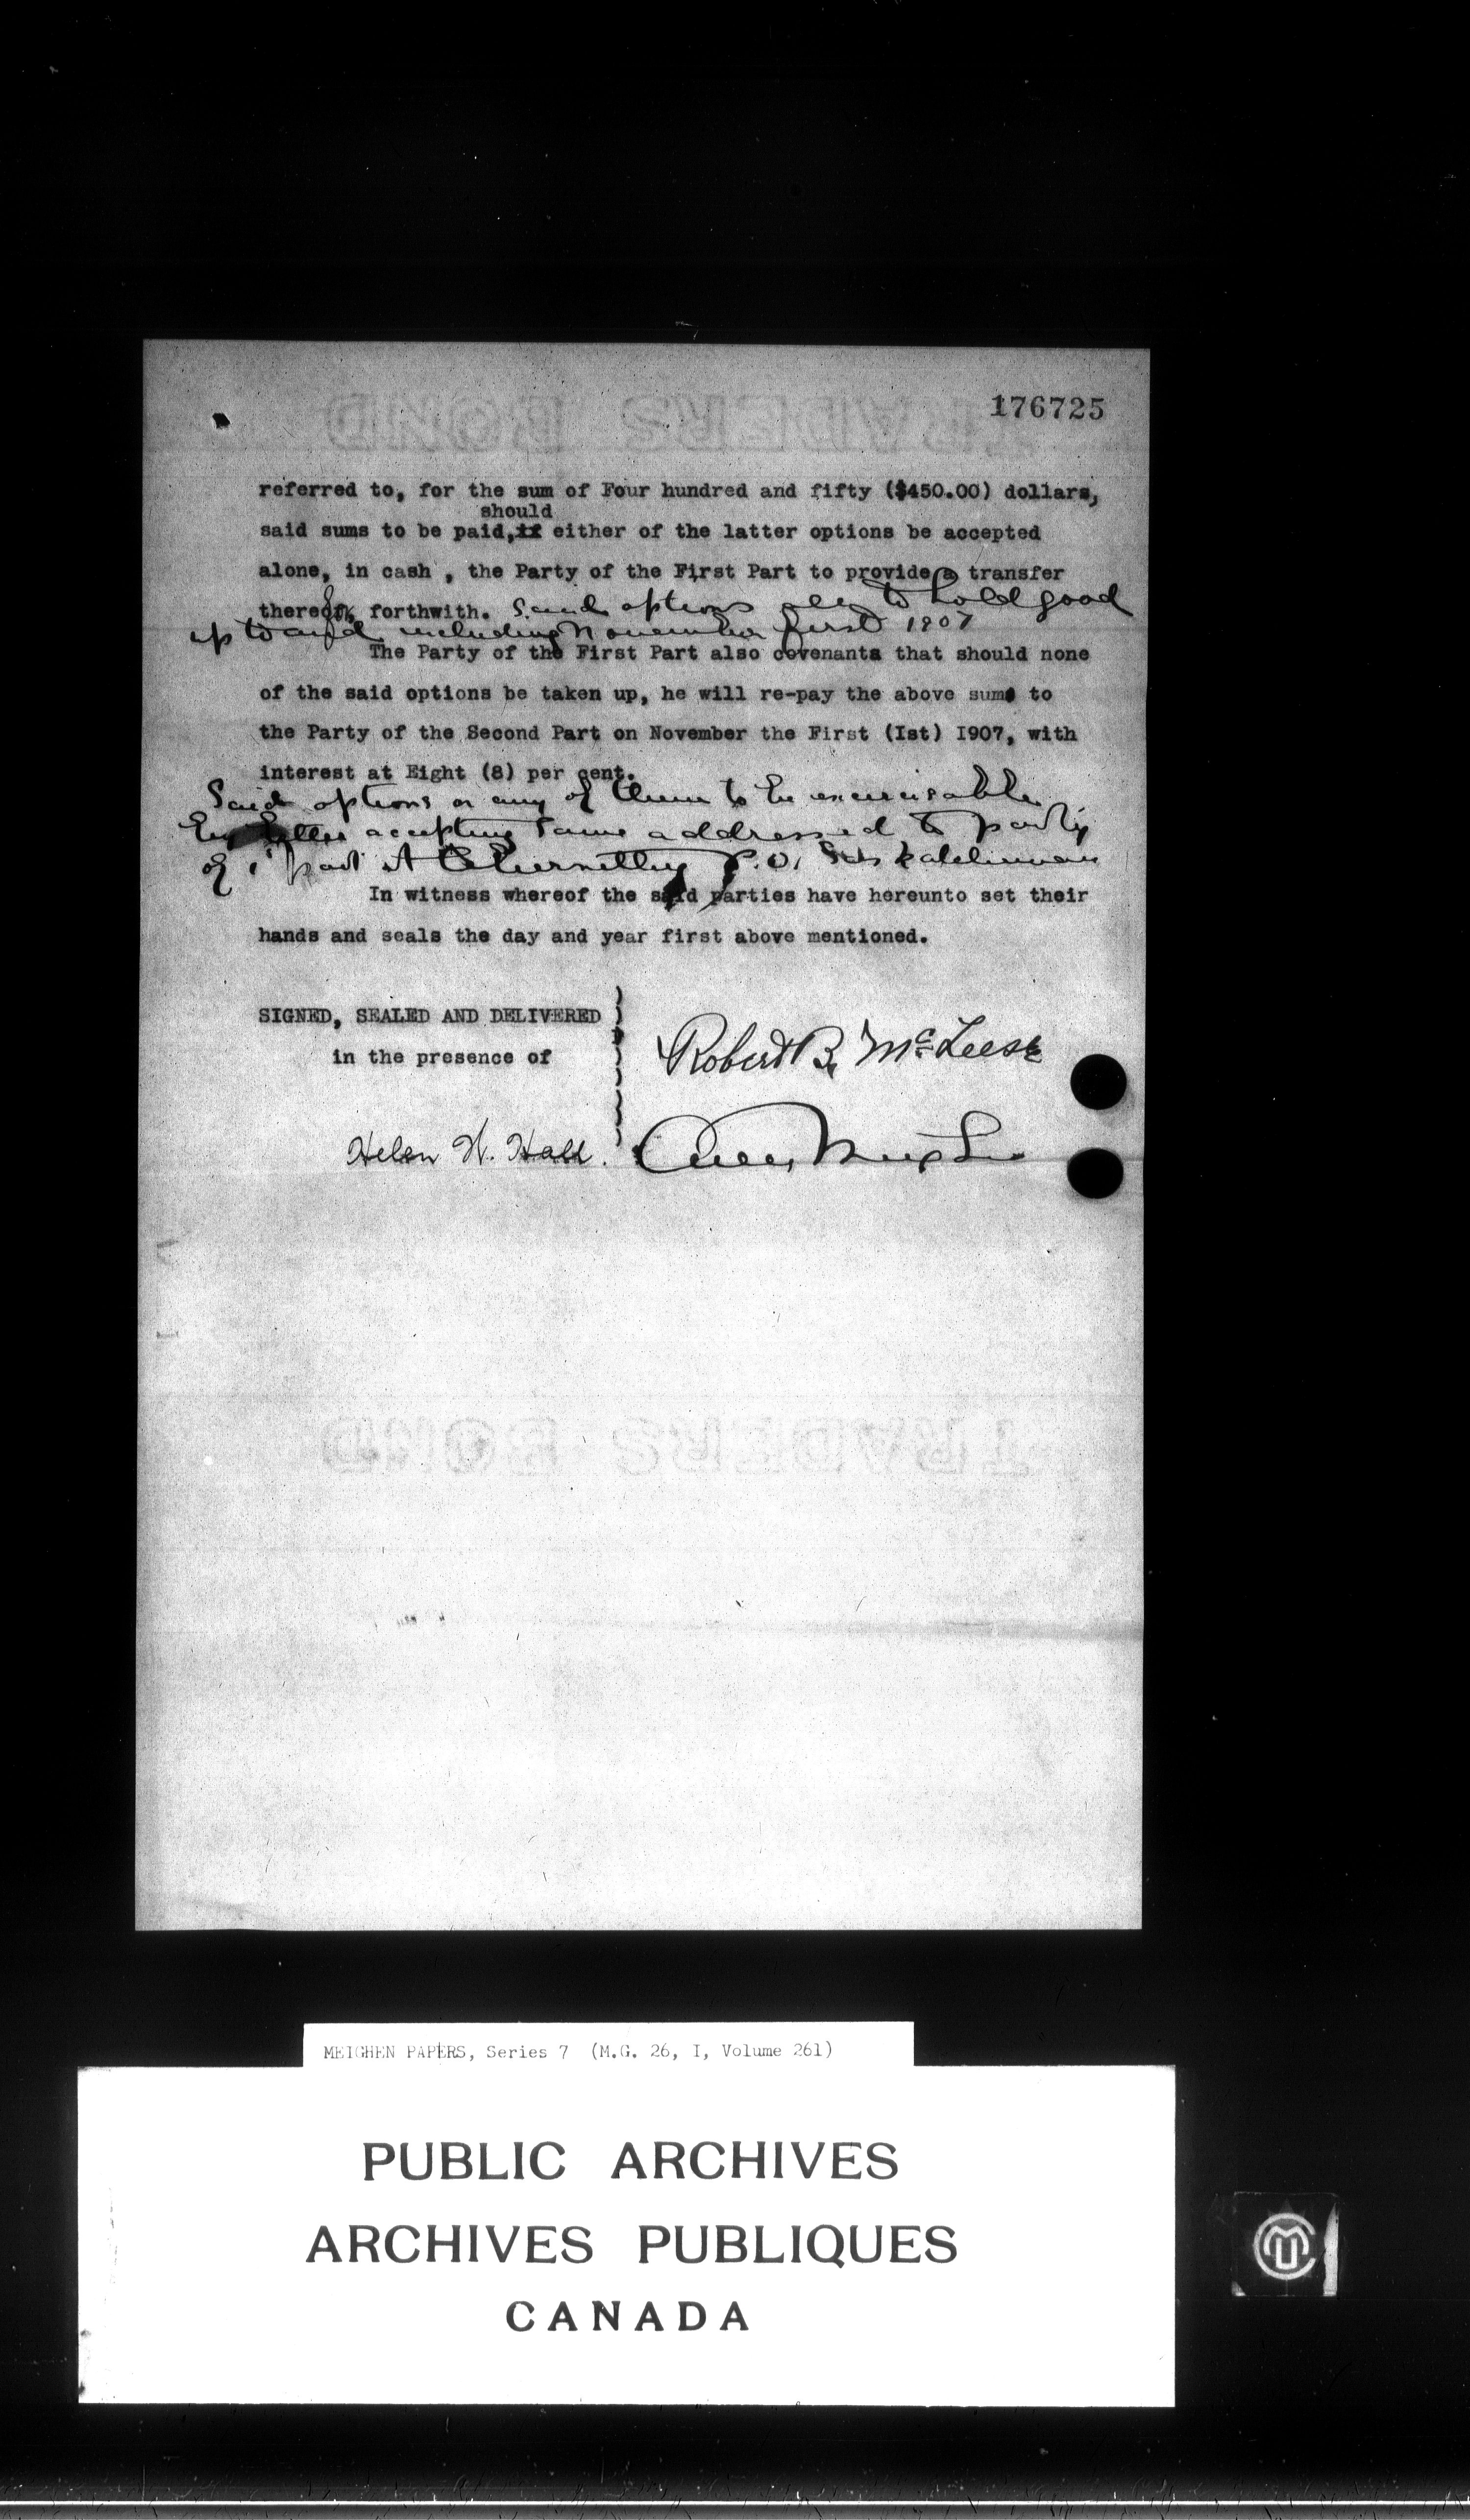 176725
TRADERS BOND
referred to, for the sum of Four hundred and fifty ($450.00) dollars,
should
said sums to be paid,if either of the latter options be accepted
alone, in cash , the Party of the First Part to provide a transfer
thereof, forthwith. Said options all to hold good
up to and including November first 1907
The Party of the First Part also covenants that should none
of the said options be taken up, he will re-pay the above sums to
the Party of the Second Part on November the First (Ist) I907, with
interest at Eight (8) per cent.
Said options or any of them to be exercisable
by letter accepting same addressed to party
of 1st part at P.O. Saskatchewan
In witness whereof the said parties have hereunto set their
hands and seals the day and year first above mentioned.
SIGNED, SEALED AND DELIVERED
in the presence of
Robert B. McLeese
Helen H. Hall.
TRADERS BOND
MEIGHEN PAPERS, Series 7 (M.G. 26, I, Volume 261)
PUBLIC ARCHIVES
ARCHIVES PUBLIQUES
CANADA